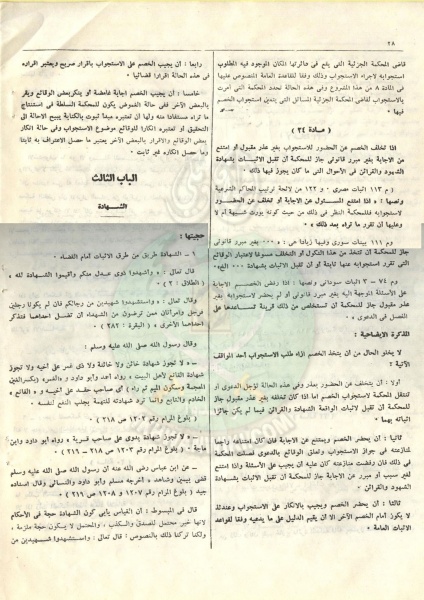 ٢٨
قاضى المحكمة الجزئية التى يقع فى دائرتها المكان الموجود فيه المطلوب
استجوابه لاجراء الاستجواب وذلك وفقا للقاعدة العامة المنصوص عليها
فى المادة ٨ من هذا المشروع وفى هذه الحالة تحدد المحكمة التى أمرت
بالاستجواب لقاضى المحكمة الجزئية المسائل التى يتعين استجواب الخصم
فيها .
( مادة ٣٤ )
اذا تخلف الخصم عن الحضور للاستجواب بغير عذر مقبول أو امتنع
عن الاجابة بغير مبرر قانونى جاز للمحكمة أن تقبل الاثبات بشهادة
الشهود والقرائن فى الأحوال التى ما كان يجوز فيها ذلك .
( م ١١٣ اثبات مصرى ، و ١٢٢ من لائحة ترتيب المحاكم الشرعية
ونصها : « اذا امتنع المسئول عن الاجابة أو تخلف عن الحضور
لاستجوابه فللمحكمة النظر فى ذلك من حيث كونه يورث شبهة أم لا
ولها أن تقرر ما تراه بعد ذلك » .
وم ١١١ بينات سورى وفيها زيادة هى : « ٠٠٠ بغير مبرر قانونى
جاز للمحكمة أن تتخذ من هذا النكول أو التخلف مسوغا لاعتبار الوقائع
التى تقرر استجوابه عنها ثابتة أو أن تقبل الاثبات بشهادة ٠٠٠ الخ » .
وم ٧٤ – ٢ اثبات سودانى ونصها : اذا رفض الخصم الاجابة
على الأسئلة الموجهة اليه بغير مبرر قانونى أو لم يحضر لاستجوابه بغير
عذر مقبول جاز للمحكمة أن تستخلص من ذلك قرينة تساعدها على
الفصل فى الدعوى .
المذكرة الايضاحية :
لا يخلو الحال من أن يتخذ الخصم ازاء طلب الاستجواب أحد المواقف
الآتية :
أولا : أن يتخلف عن الحضور بعذر وفى هذه الحالة تؤجل الدعوى أو
تنتقل المحكمة لاستجواب الخصم أما اذا كان تخلفه بغير عذر مقبول جاز
للمحكمة أن تقبل لاثبات الواقعة الشهادة والقرائن فيما لم يكن جائزا
اثباته بهما .
ثانيا : أن يحضر الخصم ويمتنع عن الاجابة فان كان امتناعه راجعا
لمنازعته فى جواز الاستجواب وتعلق الوقائع بالدعوى فصلت المحكمة
فى ذلك فان رفضت منازعته كان عليه أن يجيب على الأسئلة واذا امتنع
لغير سبب أو مبرر عن الاجابة جاز للمحكمة أن تقبل الاثبات بشهادة
الشهود والقرائن .
ثالثا : أن يحضر الخصم ويجيب بالانكار على الاستجواب وعندئذ
لا يكون أمام الخصم الآخر الا أن يقيم الدليل على ما يدعيه وفقا لقواعد
الاثبات العامة .
رابعا : أن يجيب الخصم على الاستجواب باقرار صريح ويعتبر اقراره
فى هذه الحالة اقرارا قضائيا .
خامسا : أن يجيب الخصم اجابة غامضة أو ينكر بعض الوقائع ويقر
بالبعض الآخر ففى حالة الغموض يكون للمحكمة السلطة فى استنتاج
ما تراه مستفادا منه ولها أن تعتبره مبدأ ثبوت بالكتابة يبيح الاحالة الى
التحقيق أو تعتبره انكارا للوقائع موضوع الاستجواب وفى حالة انكار
بعض الوقائع والاقرار بالبعض الآخر يعتبر ما حصل الاعتراف به ثابتا
وما حصل انكاره غير ثابت .
الباب الثالث
الشهادة
حجيتها :
١ – الشهادة طريق من طرق الاثبات أمام القضاء .
قال تعالى : « وأشهدوا ذوى عدل منكم وأقيموا الشهادة لله »
( الطلاق : ٢ ) .
وقال تعالى : « واستشهدوا شهيدين من رجالكم فان لم يكونا رجلين
فرجل وامرأتان ممن ترضون من الشهداء أن تضل احداهما فتذكر
احداهما الأخرى » ( البقرة : ٢٨٢ ) .
وقال رسول الله صلى الله عليه وسلم :
– « لا تجوز شهادة خائن ولا خائنة ولا ذى غمر على أخيه ولا تجوز
شهادة القانع لأهل البيت » رواه أحمد وأبو داود ( « الغمر » بكسر الغين
المعجمة وسكون الميم ثم راء ) أى صاحب حقد على أخيه ، « والقانع »
الخادم والتابع وانما ترد شهادته للتهمة بجلب النفع لنفسه .
( بلوغ المرام رقم ١٢٠٢ ص ٢١٨ )
– « لا تجوز شهادة بدوى على صاحب قرية » رواه أبو داود وابن
ماجة . ( بلوغ المرام رقم ١٢٠٣ ص ٢١٨ – ٢١٩ ) .
– عن ابن عباس رضى الله عنه أن رسول الله صلى الله عليه وسلم
قضى بيمين وشاهد « أخرجه مسلم وأبو داود والنسائى وقال اسناده
جيد ( بلوغ المرام رقم ١٢٠٧ و ١٢٠٨ ص ٢١٩ ) .
قال فى المبسوط : أن القياس يأبى كون الشهادة حجة فى الأحكام
لأنها خبر محتمل للصدق والكذب ، والمحتمل لا يكون حجة ملزمة ،
ولكنا تركنا ذلك بالنصوص : قال تعالى : « واستشهدوا شهيدين من